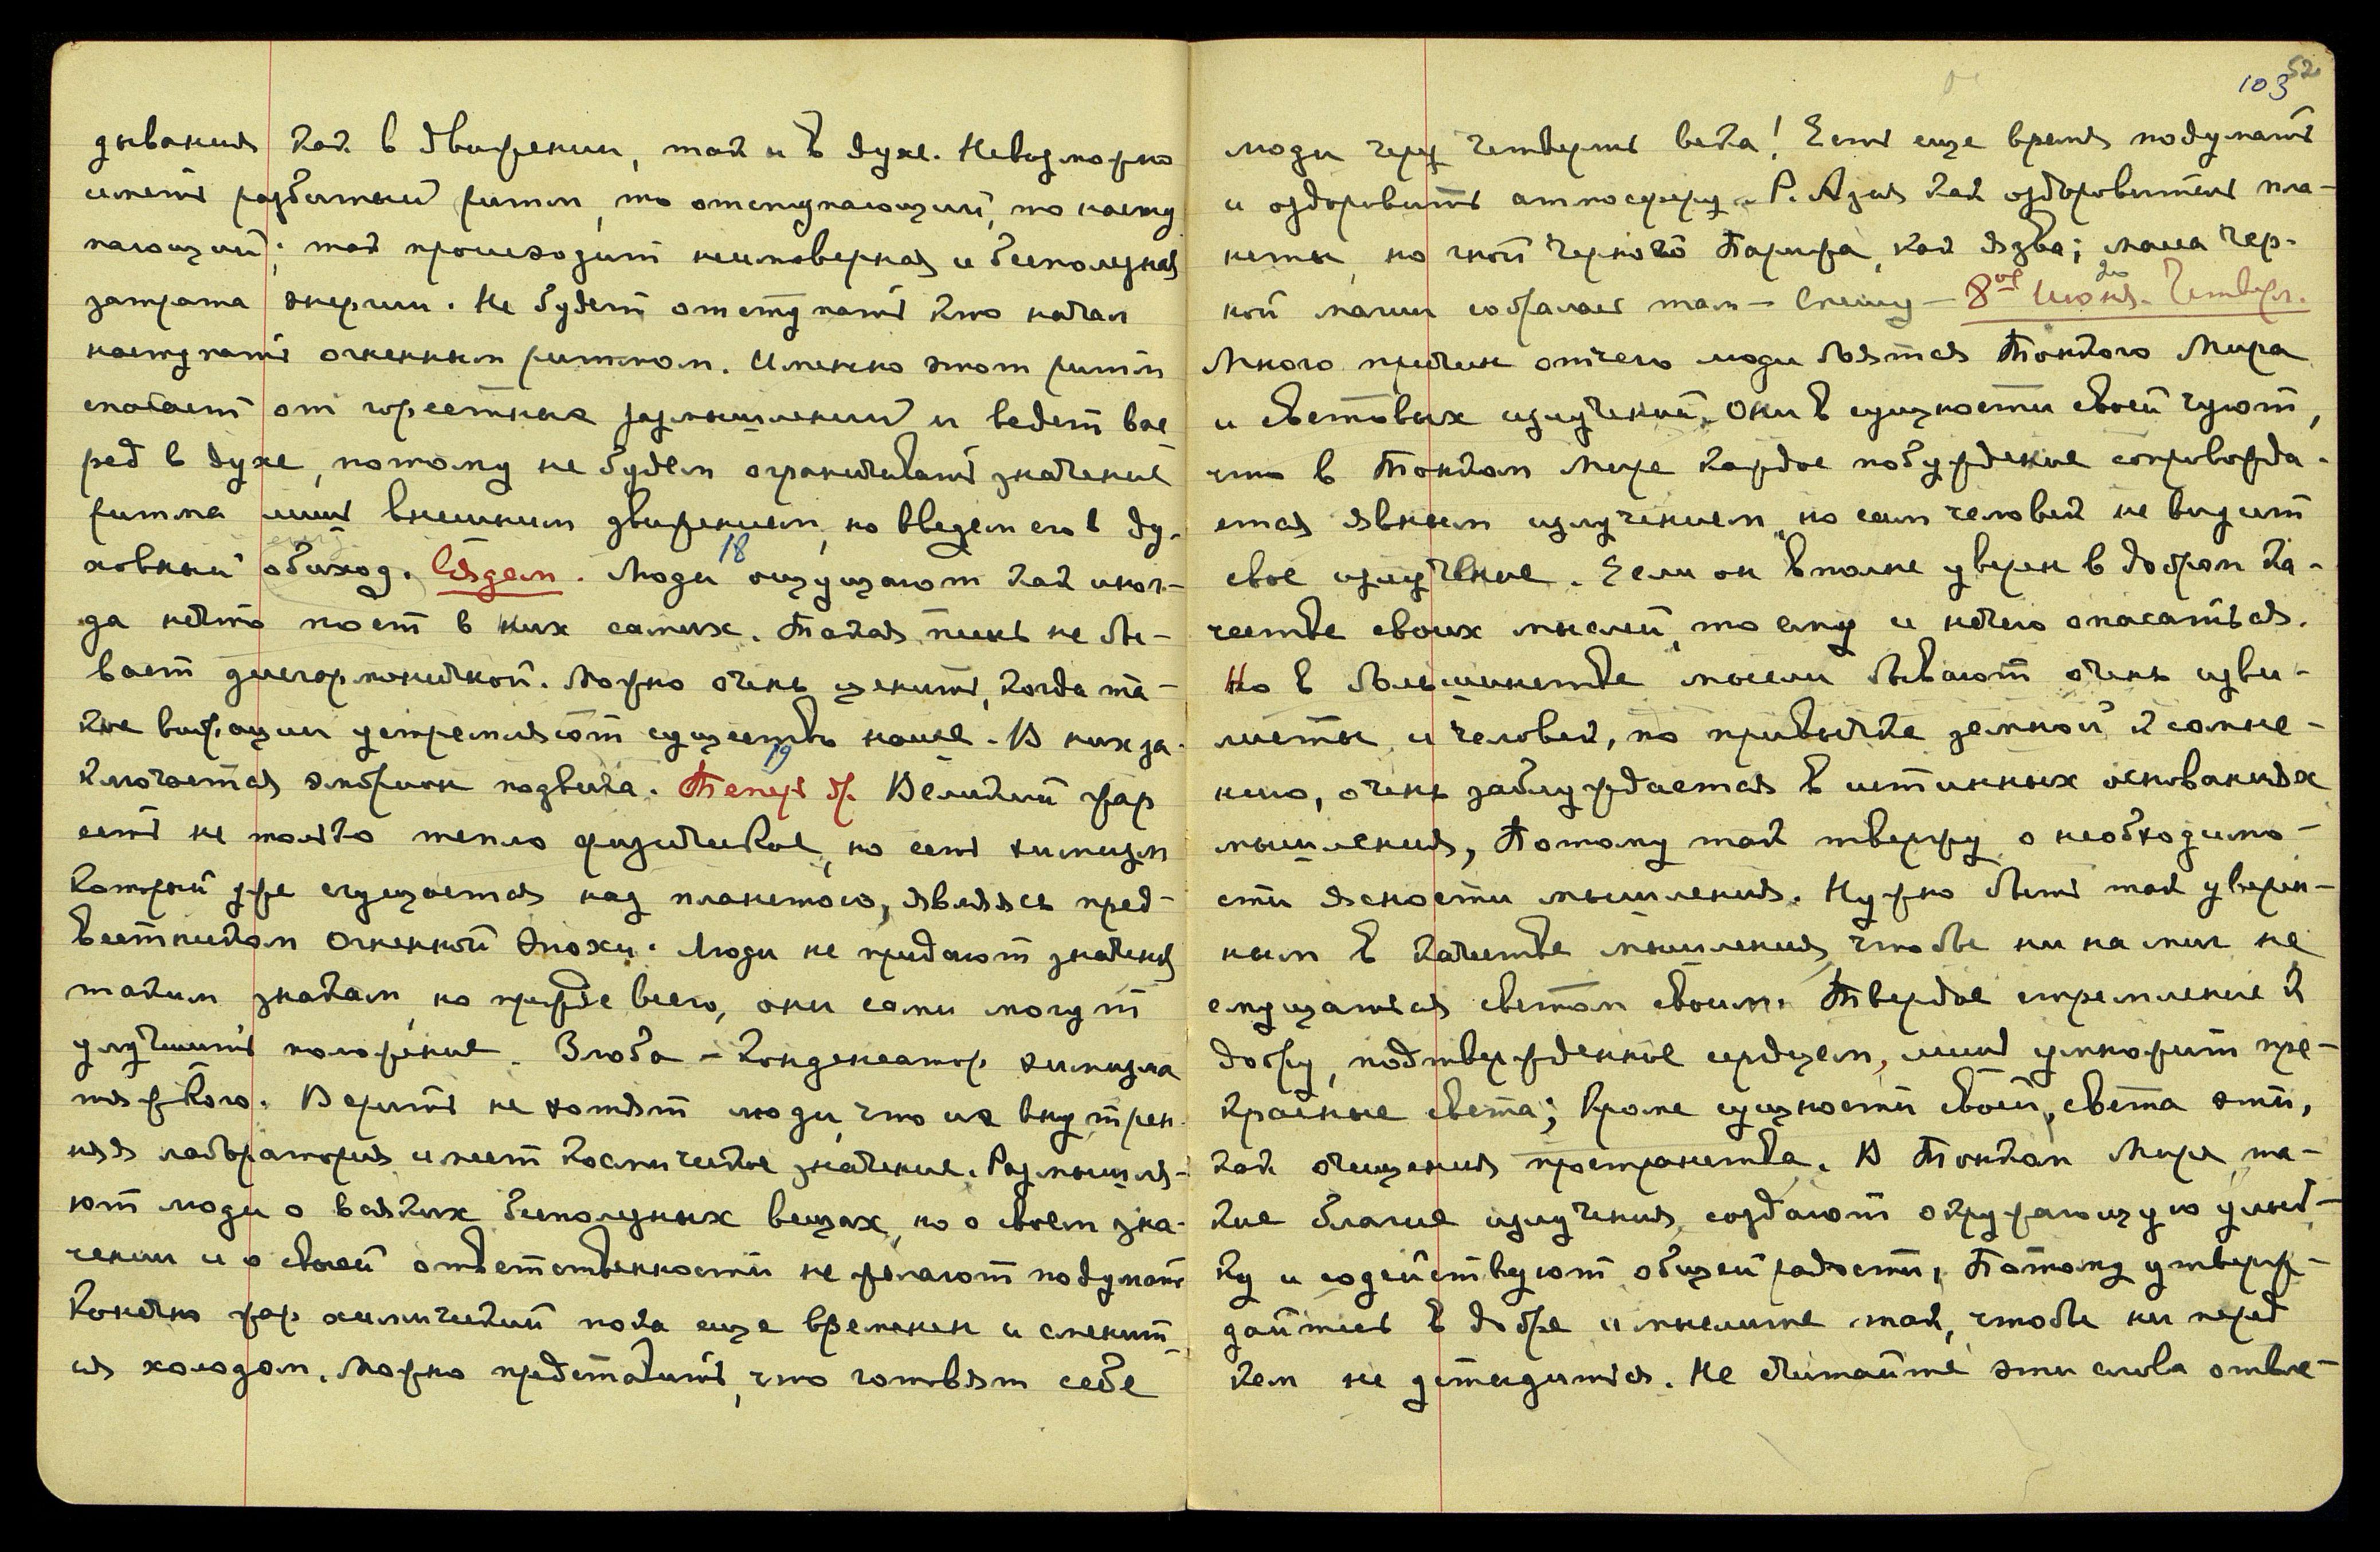 дывания как в движении, так и в духе. Невозможно
иметь разбитый ритм, то отступающий, то насту
пающий; так происходит неимоверная и бесполезная
затрата энергии. Не будет отступать кто начал
наступать огненным ритмом. Именно этот ритм
спасает от горестных размышлений и ведет впе
ред в духе, потому не будем ограничивать значение
ритма лишь внешним движением, но введем его в ду-
ховный обиход. Сядем. 18 Люди ощущают как иног-
да нечто поет в них самих. Такая песнь не бы-
вает дисгармоничной. Можно очень ценить, когда та-
кие вибрации устремляют существо наше. В них за-
ключается эмбрион подвига. Теперь др. 19 Великий жар
есть не только тепло физическое, но есть химизм
который уже сгущается над планетою, являясь пред-
вестником Огненной Эпохи. Люди не придают значения
таким знакам, но прежде всего, они сами могут
улучшить положение. Злоба – конденсатор химизма
тяжкого. Верить не хотят люди, что их внутрен-
няя лаборатория имеет космическое значение. Размышля-
ют люди о всяких бесполезных вещах, но о своем зна-
чении и о своей ответственности не желают подумать
Конечно жар химический пока еще временен и сменит
ся холодом. Можно представить, что готовят себе
52
103
люди через четверть века! Есть еще время подумать
и оздоровить атмосферу. Р. Азия как оздоровитель пла-
неты, но гной черного Парижа, как язва; масса чер-
ной магии собралась там – Спешу – 8ое Июня. Четверг.
Много причин отчего люди боятся Тонкого Мира
и световых излучений. Они в сущности своей чуют,
что в Тонком Мире каждое побуждение сопровожда-
ется явным излучением, но сам человек не видит
свое излучение. Если он вполне уверен в добром ка-
честве своих мыслей, то ему и нечего опасаться.
Но в большинстве мысли бывают очень изви-
листы, и человек, по привычке земной к сомне-
нию, очень заблуждается в истинных основаниях
мышления, Потому так твержу о необходимо-
сти ясности мышления. Нужно быть так уверен-
ным в качестве мышления, чтобы ни на миг не
смущаться светом своим. Твердое стремление к
добру, подтвержденное сердцем, лишь умножит пре-
красные света; Кроме сущности своей, света эти,
как очищения пространства. В Тонком Мире, та-
кие благие излучения, создают окружающую улыб-
ку и содействуют общей радости, Потому утверж-
дайтесь в добре и мыслите так, чтобы ни перед
кем не устыдиться. Не считайте эти слова отвле-